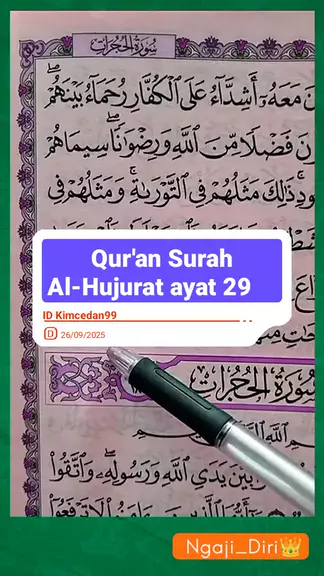 سُورَةُ الْحُجُرَاتِ
نَ مَعَهُۥٓ أَشِدَّآءُ عَلَى ٱلْكُفَّارِ رُحَمَآءُ بَيْنَهُمْ ۖ
نَ فَضْلًا مِّنَ ٱللَّهِ وَرِضْوَٰنًا ۖ سِيمَاهُمْ
ودِ ۚ ذَٰلِكَ مَثَلُهُمْ فِى ٱلتَّوْرَىٰةِ ۚ وَمَثَلُهُمْ فِى
Qur'an Surah
Al-Hujurat ayat 29
ID Kimcedan99
26/09/2025
سُورَةُ الْحُجُرَاتِ
بَيْنَ يَدَىِ ٱللَّهِ وَرَسُولِهِۦ ۖ وَٱتَّقُوا۟
Ngaji_Diri